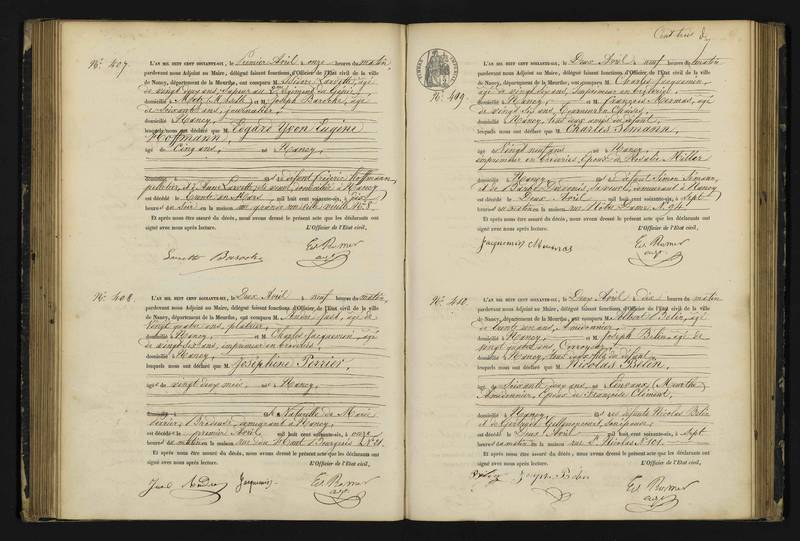 N.º 407.
L'AN MIL HUIT CENT SOIXANTE-SIX, le Premier Avril à onze heures du matin,
pardevant nous Adjoint au Maire, délégué faisant fonctions d'Officier de l'Etat civil de la ville
de Nancy, département de la Meurthe, ont comparu M. Lavette, âgé
de vingt cinq ans, Sapeur au Régiment du Génie,
domicilié à Metz (Moselle) et M. Joseph Baroche, âgé
de soixante ans, journalier,
domicilié à Nancy,
lesquels nous ont déclaré que M. Edgard Yvon Eugène
Hoffmann,
âgé de Cinq ans, né à Nancy,
et de défunt Frédéric Hoffmann,
pelletier, et d'Anne Lavette, sa veuve, domiciliée à Nancy
est décédé le Trente un Mars mil huit cent soixante-six, à dix
heures du soir en la maison rue grande ville vieille N.º 8.
Et après nous être assuré du décès, nous avons dressé le présent acte que les déclarants ont
signé avec nous après lecture. L'Officier de l'Etat civil,
Lavette Baroche Ed Rumer
adjt
N.º 408.
L'AN MIL HUIT CENT SOIXANTE-SIX, le Deux Avril à neuf heures du matin,
pardevant nous Adjoint au Maire, délégué faisant fonctions d'Officier de l'Etat civil de la ville
de Nancy, département de la Meurthe, ont comparu M. André Just, âgé de
vingt quatre ans, plâtrier,
domicilié à Nancy, et M. Charles Jacquemin, âgé
de vingt six ans, imprimeur en broderies,
domicilié à Nancy,
lesquels nous ont déclaré que M. Joséphine Perrier,
âgée de vingt deux mois née à Nancy,
domiciliée à et Naturelle de Marie
Perrier, Brodeuse, demeurant à Nancy,
est décédée le premier Avril, mil huit cent soixante-six, à onze
heures du matin en la maison rue du Haut Bourgeois N.º 21.
Et après nous être assuré du décès, nous avons dressé le présent acte que les déclarants ont
signé avec nous après lecture. L'Officier de l'Etat civil,
Just André Jacquemin Ed Rumer
adjt
Cent trois
N.º 409.
L'AN MIL HUIT CENT SOIXANTE-SIX, le Deux Avril à neuf heures du matin
pardevant nous Adjoint au Maire, délégué faisant fonctions d'Officier de l'Etat civil de la ville
de Nancy, département de la Meurthe, ont comparu M. Charles Jacquemin,
âgé de vingt six ans, imprimeur en broderies,
domicilié à Nancy, et M. François Mournas, âgé
de vingt six ans, Tourneur en Chaises,
domicilié à Nancy, tous deux amis du défunt,
lesquels nous ont déclaré que M. Charles Simann,
âgé de Vingt neuf ans né à Nancy,
imprimeur en broderies, Epoux de Rosalie Miller
domicilié à Nancy, et de défunt Simon Simann,
et de Barbe sa veuve, demeurant à Nancy
est décédé le Deux Avril mil huit cent soixante-six, à sept
heures du matin en la maison rue Notre Dame N.º 94.
Et après nous être assuré du décès, nous avons dressé le présent acte que les déclarants ont
signé avec nous après lecture. L'Officier de l'Etat civil,
Jacquemin Mournas Ed Rumer
adjt
N.º 410.
L'AN MIL HUIT CENT SOIXANTE-SIX, le Deux Avril à dix heures du matin
pardevant nous Adjoint au Maire, délégué faisant fonctions d'Officier de l'Etat civil de la ville
de Nancy, département de la Meurthe, ont comparu M. Albert Belin, âgé
de trente un ans, Amidonnier,
domicilié à Nancy, et M. Joseph Belin, âgé de
vingt quatre ans, Corroyeur,
domicilié à Nancy, tous deux fils du défunt,
lesquels nous ont déclaré que M. Nicolas Belin,
âgé de Soixante deux ans né à (Meurthe)
Amidonnier, Epoux de Françoise Clément,
domicilié à Nancy, et de défunts Nicolas Belin
et de
est décédé le Deux Avril mil huit cent soixante-six, à sept
heures du matin en la maison rue S.t Nicolas N.º 101.
Et après nous être assuré du décès, nous avons dressé le présent acte que les déclarants ont
signé avec nous après lecture. L'Officier de l'Etat civil,
Belin Joseph Belin Ed Rumer
adjt